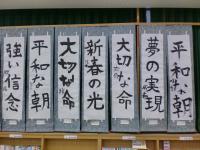 平和な朝
夢の実現
大切な命
新春の光
大切な命
平和な朝
強い信念